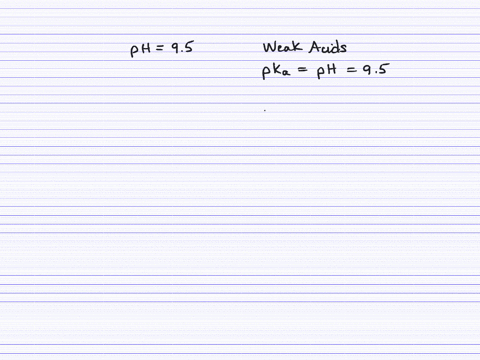 pH = 9.5
Weak Acids
pKa = pH = 9.5